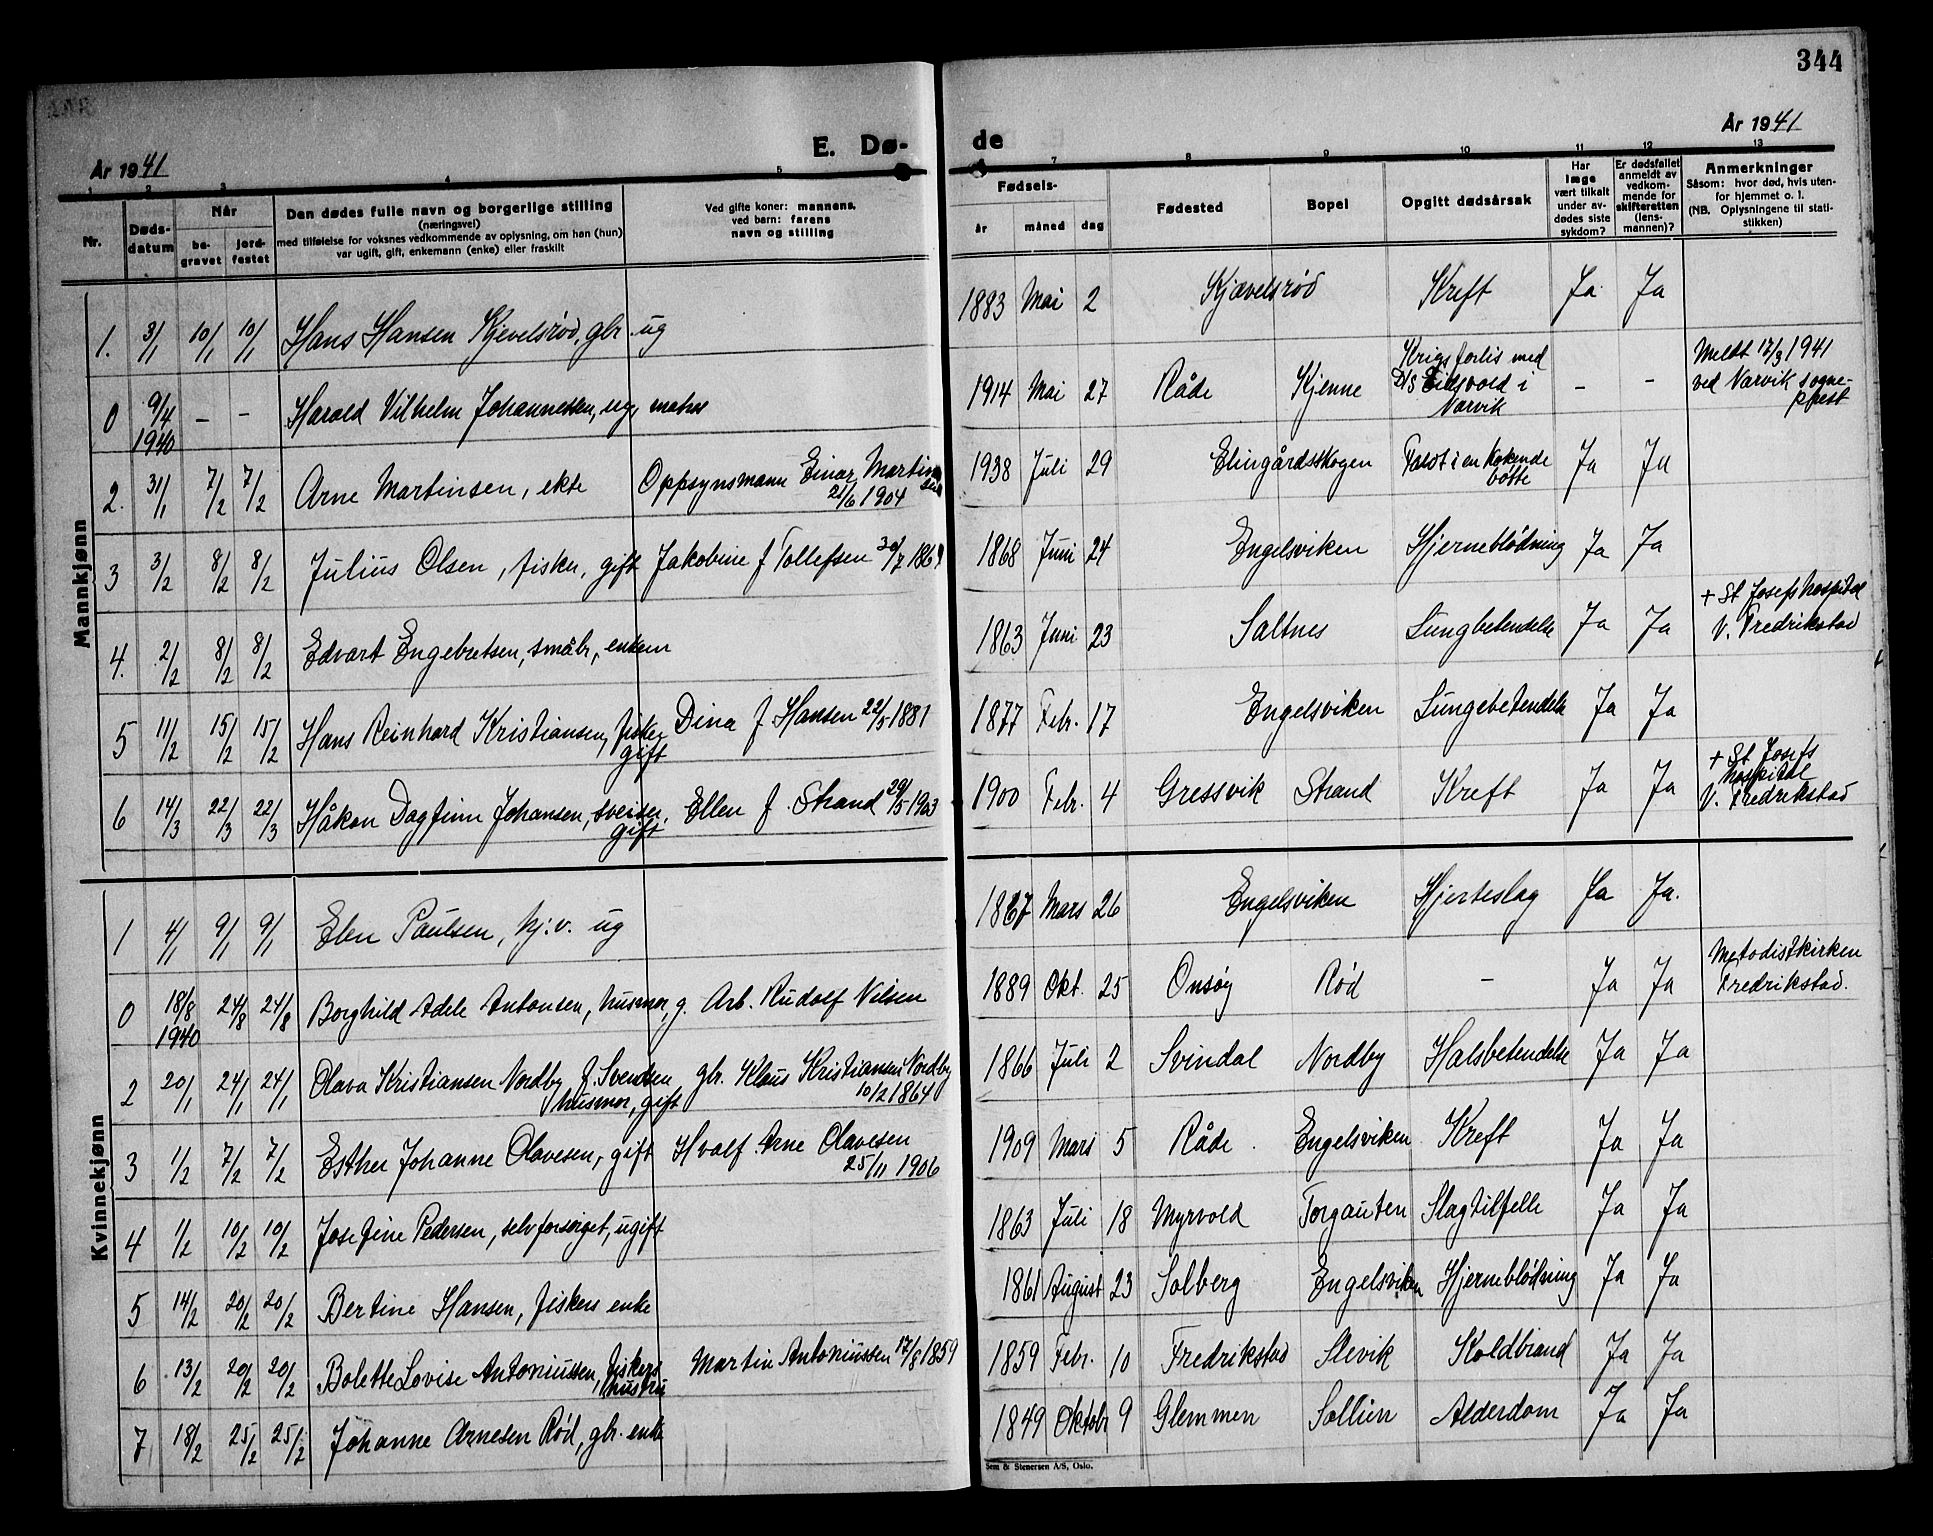 344
År 1941
E. Dø-
de
År 1941
1 2 3 4 5
7 8 9 10 11 12 13
Nr.
Døds-
datum
Når
be-
gravet
jord-
festet
Den dødes fulle navn og borgerlige stilling
(næringsvei)
med tilføielse for voksnes vedkommende av oplysning, om han (hun)
var ugift, gift, enkemann (enke) eller fraskilt
Ved gifte koner: mannens,
ved barn: farens
navn og stilling
Fødsels-
år måned dag
Fødested
Bopel
Opgitt dødsårsak
Har
læge
vært tilkalt
under av-
dødes siste
sykdom?
Er dødsfallet
anmeldt av
vedkom-
mende for
skifteretten
(lens-
mannen)?
Anmerkninger
Såsom: hvor død, hvis uten-
for hjemmet o. l.
(NB. Oplysningene til stati-
stikken)
Mannkjønn
1. 3/1 10/1 10/1 Hans Hansen Kjevelsrød, gbr. ug 1883 Mai 2 Kjævelsrød Kreft Ja Ja
0 9/4 1940 – – Harald Vilhelm Johannessen, ug, matros 1914 Mai 27 Råde Kjenne Krigsforlis med
D/S Eidsvold i
Narvik – – Meldt 12/3 1941
ved Narvik sogne-
prest
2. 31/1 7/2 7/2 Arne Martinsen, ekte Oppsynsmann Einar Martinsen
21/6 1904 1938 Juli 29 Elingårdsskogen Falst i en kokende
bøtte Ja Ja
3 3/2 8/2 8/2 Julius Olsen, fisker, gift Jakobine f Tollefsen 30/7 186 1868 Juni 24 Engelsviken Hjerneblødning Ja Ja
4. 2/2 8/2 8/2 Edvart Engebretsen, småbr, enkem 1863 Juni 23 Saltnes Lungbetendelse Ja Ja + St Josefs hospital
v. Fredrikstad
5 11/2 15/2 15/2 Hans Reinhard Kristiansen, fisker
gift Dina f Hansen 22/5 1881 1877 Febr. 17 Engelsviken Lungebetendelse Ja Ja
6 14/3 22/3 22/3 Håkon Dagfinn Johansen, sveiser,
gift Ellen f. Strand 29/5 1903 1900 Febr. 4 Gressvik Strand Kreft Ja Ja + St Josefs
hospital
v. Fredrikstad
Kvinnekjønn
1 4/1 9/1 9/1 Elen Paulsen, hj.v. ug 1867 Mars 26 Engelsviken Hjerteslag Ja Ja.
0 18/8 1940 24/8 24/8 Borghild Adele Antonsen, husmor, g. Arb. Rudolf Nilsen 1889 Okt. 25 Onsøy Rød – Ja Ja Metodistkirken
Fredrikstad.
2 20/1 24/1 24/1 Olava Kristiansen Nordby f. Svendsen
husmor, gift gbr. Klaus Kristiansen Nordby
10/2 1864 1866 Juli 2 Svindal Nordby Halsbetendelse Ja Ja
3 1/2 7/2 7/2 Esther Johanne Olavesen, gift Hvalf. Arne Olavesen
25/11 1906 1909 Mars 5 Råde. Engelsviken Kreft Ja Ja
4 1/2 10/2 10/2 Josefine Pedersen, selvforsørget, ugift 1863 Juli 18 Myrvold Torgauten Slagtilfelle Ja Ja
5 14/2 20/2 20/2 Bertine Hansen, fiskers enke 1861 August 23 Solberg Engelsviken Hjerneblødning Ja Ja
6 13/2 20/2 20/2 Bolette Lovise Antoniussen, fiskers
hustru Martin Antoniussen 17/8 1859 1859 Febr. 10 Fredrikstad Slevik Koldbrand Ja Ja
7 18/2 25/2 25/2 Johanne Arnesen Rød, gbr. enke 1849 Oktobr 9 Glemmen Sollien Alderdom Ja Ja
Sem & Stenersen A/S, Oslo.